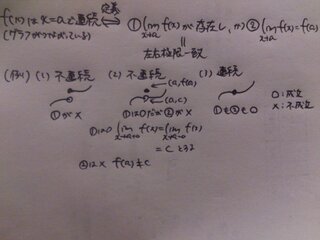 f(x)はx=aで連続 ⇔(定義) ①(lim_{x→a} f(x)が存在し、かつ ②(lim_{x→a} f(x)=f(a)
(グラフがつながっている)
‖
左右極限一致
(例) (1) 不連続 (2) 不連続 (3) 連続
(a,f(a))
(a,c)
①が× ①は○だが②が× ①も②も○
○:成立
×:不成立
①は○ (lim_{x→a+0} f(x)=lim_{x→a-0} f(x)
=cとする
②は× f(a)≠c